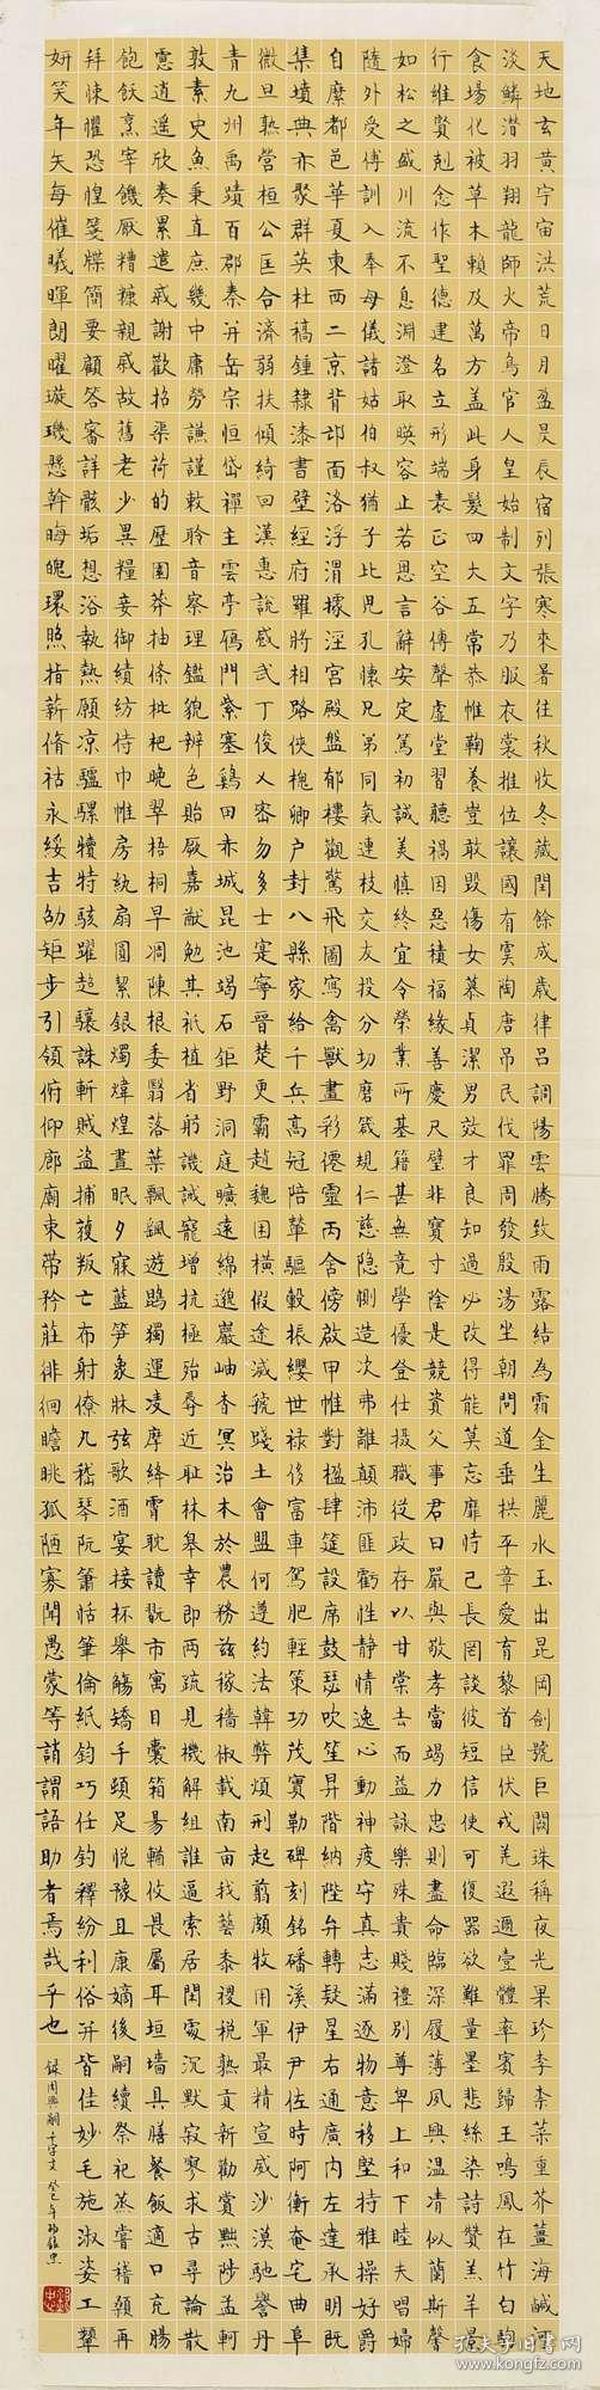 天地玄黃宇宙洪荒日月盈昃辰宿列張寒來暑往秋收冬藏閏餘成歲律呂調陽雲騰致雨露結為霜金生麗水玉出昆岡劍號巨闕珠稱夜光果珍李柰菜重芥薑海鹹河
淡鱗潛羽翔龍師火帝鳥官人皇始制文字乃服衣裳推位讓國有虞陶唐吊民伐罪周發殷湯坐朝問道垂拱平章愛育黎首臣伏戎羌遐邇壹體率賓歸王鳴鳳在竹白駒
食場化被草木賴及萬方盖此身髮四大五常恭惟鞠養豈敢毀傷女慕貞潔男效才良知過必改得能莫忘靡恃己長罔談彼短信使可復器欲難量墨悲絲染詩贊羔羊景
行維賢剋念作聖德建名立形端表正空谷傳聲虛堂習聽禍因惡積福緣善慶尺璧非寶寸陰是競資父事君曰嚴與敬孝當竭力忠則盡命臨深履薄夙興溫凊似蘭斯馨
如松之盛川流不息淵澄取暎容止若思言辭安定篤初誠美慎終宜令榮業所基籍甚無竟學優登仕攝職從政存以甘棠去而益詠樂殊貴賤禮別尊卑上和下睦夫唱婦
隨外受傅訓入奉母儀諸姑伯叔猶子比兒孔懷兄弟同氣連枝交友投分切磨箴規仁慈隱惻造次弗離顛沛匪虧性靜情逸心動神疲守真志滿逐物意移堅持雅操好爵
自縻都邑華夏東西二京背邙面洛浮渭據涇宮殿盤郁樓觀驚飛圖寫禽獸畫彩僊靈丙舍傍啟甲帷對楹肆筵設席鼓瑟吹笙昇階納陛弁轉疑星右通廣內左達承明既
集墳典亦聚群英杜稿鍾隸漆書壁經府羅將相路俠槐卿戶封八縣家給千兵高冠陪輦驅轂振纓世祿侈富車駕肥輕策功茂實勒碑刻銘磻溪伊尹佐時阿衡奄宅曲阜
微旦熟營桓公匡合濟弱扶傾綺回漢惠說感武丁俊乂密勿多士寔寧晉楚更霸趙魏困橫假途滅虢踐土會盟何遵約法韓弊煩刑起翦頗牧用軍最精宣威沙漠馳譽丹
青九州禹蹟百郡秦并岳宗恒岱禪主雲亭雁門紫塞鷄田赤城昆池碣石鉅野洞庭曠遠綿邈巖岫杳冥治本於農務茲稼穡俶載南畝我藝黍稷稅熟貢新勸賞黜陟孟軻
敦素史魚秉直庶幾中庸勞謙謹敕聆音察理鑑貌辨色貽厥嘉猷勉其祗植省躬譏誡寵增抗極殆辱近恥林皋幸即兩疏見機解組誰逼索居閒處沉默寂寥求古尋論散
慮逍遙欣奏累遣慼謝歡招渠荷的歷園莽抽條枇杷晚翠梧桐早凋陳根委翳落葉飄颻遊鵾獨運凌摩絳霄耽讀翫市寓目囊箱易輶攸畏屬耳垣墻具膳餐飯適口充腸
飽飫烹宰饑厭糟糠親戚故舊老少異糧妾御績紡侍巾帷房紈扇圓絜銀燭煒煌晝眠夕寐藍筍象牀弦歌酒宴接杯舉觴矯手頓足悅豫且康嫡後嗣續祭祀蒸嘗稽顙再
拜悚懼恐惶箋牒簡要顧答審詳骸垢想浴執熱願涼驢騾犢特駭躍超驤誅斬賊盜捕獲叛亡布射僚丸嵇琴阮簫恬筆倫紙鈞巧任釣釋紛利俗并皆佳妙毛施淑姿工顰
妍笑年矢每催曦暉朗曜璇璣懸斡晦魄環照指薪脩祜永綏吉劭矩步引領俯仰廊廟束帶矜莊徘徊瞻眺孤陋寡聞愚蒙等誚謂語助者焉哉乎也
錄周興嗣千字文 癸巳年
孔夫子旧书网
www.kongfz.com